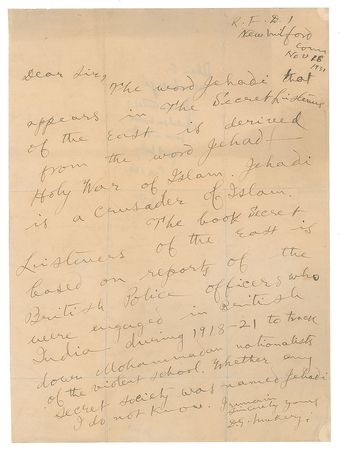 R. F. D. 1
New Milford
Conn
Nov 18
1931
Dear Sir,
The word Jehadi that
appears in The Secret Listeners
of the East is derived
from the word Jehad—
Holy War of Islam. Jehadi
is a Crusader of Islam.
The book Secret
Listeners of the East is
based on reports of the
British Police officers who
were engaged in British
India during 1918-21 to track
down Mohammadan nationalists
of the violent school. Whether any
secret society was named Jehadi
I do not know. I remain
sincerely yours
D. G. Mukerji